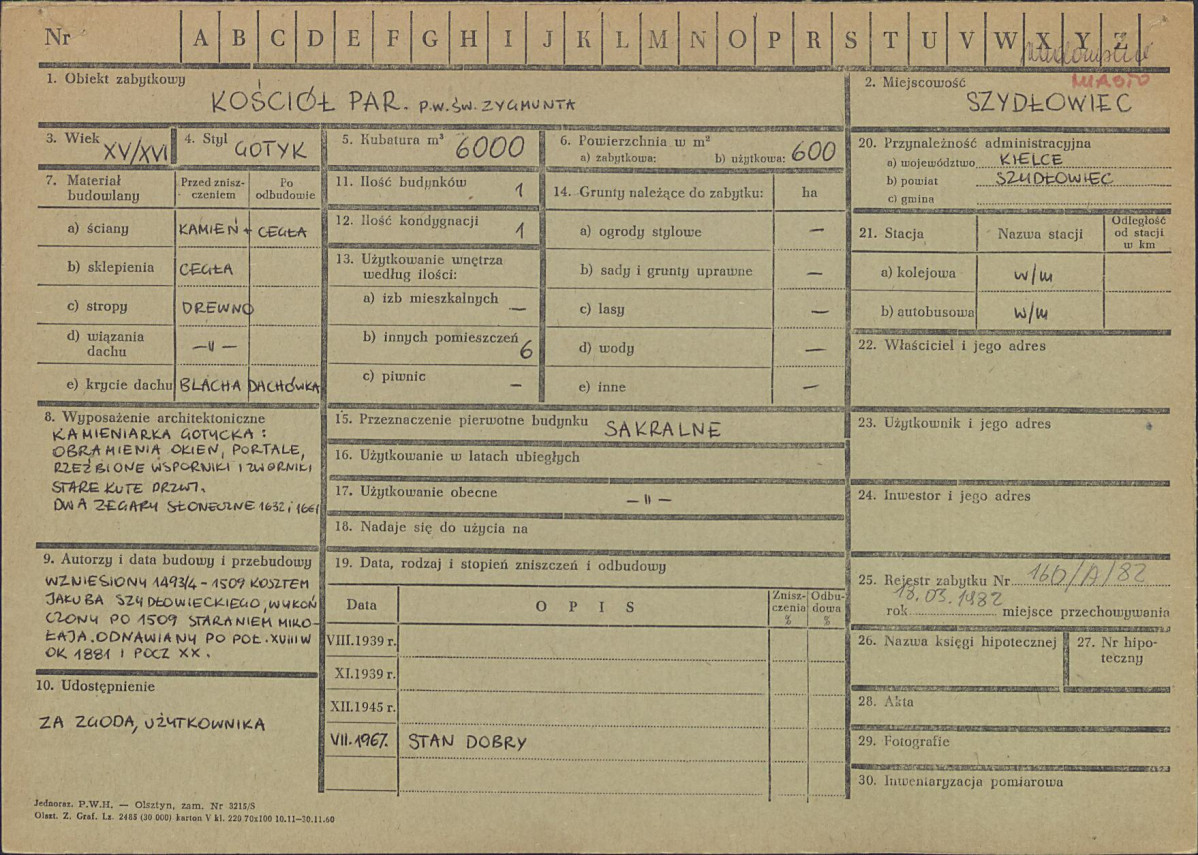 Nr A B C D E F G H I J K L M N O P R S T U V W X Y Z
1. Obiekt zabytkowy
KOŚCIÓŁ PAR. P.W. ŚW. ZYGMUNTA
2. Miejscowość
MIASTO
SZYDŁOWIEC
3. Wiek XV/XVI
4. Styl GOTYK
5. Kubatura m³ 6000
6. Powierzchnia w m²
a) zabytkowa: b) użytkowa: 600
7. Materiał budowlany
Przed znisz-
czeniem
Po
odbudowie
a) ściany KAMIEŃ + CEGŁA
b) sklepienia CEGŁA
c) stropy DREWNO
d) wiązania
dachu —〃—
e) krycie dachu BLACHA DACHÓWKA
8. Wyposażenie architektoniczne
KAMIENIARKA GOTYCKA:
OBRAMIENIA OKIEN, PORTALE,
RZEŹBIONE WSPORNIKI I ZWORNIKI
STARE KUTE DRZWI.
DWA ZEGARY SŁONECZNE 1632 i 1661
9. Autorzy i data budowy i przebudowy
WZNIESIONY 1493/4 - 1509 KOSZTEM
JAKUBA SZYDŁOWIECKIEGO, WYKOŃ
CZONY PO 1509 STARANIEM MIKO-
ŁAJA. ODNAWIANY PO POŁ. XVIII W
OK 1881 I POCZ XX.
10. Udostępnienie
ZA ZGODĄ UŻYTKOWNIKA
11. Ilość budynków 1
12. Ilość kondygnacji 1
13. Użytkowanie wnętrza
według ilości:
a) izb mieszkalnych —
b) innych pomieszczeń 6
c) piwnic —
14. Grunty należące do zabytku: ha
a) ogrody stylowe —
b) sady i grunty uprawne —
c) lasy —
d) wody —
e) inne —
15. Przeznaczenie pierwotne budynku SAKRALNE
16. Użytkowanie w latach ubiegłych
17. Użytkowanie obecne —〃—
18. Nadaje się do użycia na
19. Data, rodzaj i stopień zniszczeń i odbudowy
Data OPIS
Znisz-
czenia
%
Odbu-
dowa
%
VIII.1939 r.
XI.1939 r.
XII.1945 r.
VII.1967. STAN DOBRY
20. Przynależność administracyjna
a) województwo KIELCE
b) powiat SZYDŁOWIEC
c) gmina
21. Stacja Nazwa stacji
Odległość
od stacji
w km
a) kolejowa w/m
b) autobusowa w/m
22. Właściciel i jego adres
23. Użytkownik i jego adres
24. Inwestor i jego adres
25. Rejestr zabytku Nr 160/A/82
18.03.1982
rok miejsce przechowywania
26. Nazwa księgi hipotecznej
27. Nr hipo-
teczny
28. Akta
29. Fotografie
30. Inwentaryzacja pomiarowa
Jednoraz. P.W.H. — Olsztyn, zam. Nr 3215/S
Olszt. Z. Graf. Lz. 2485 (30 000) karton V kl. 220 70x100 10.11—30.11.60